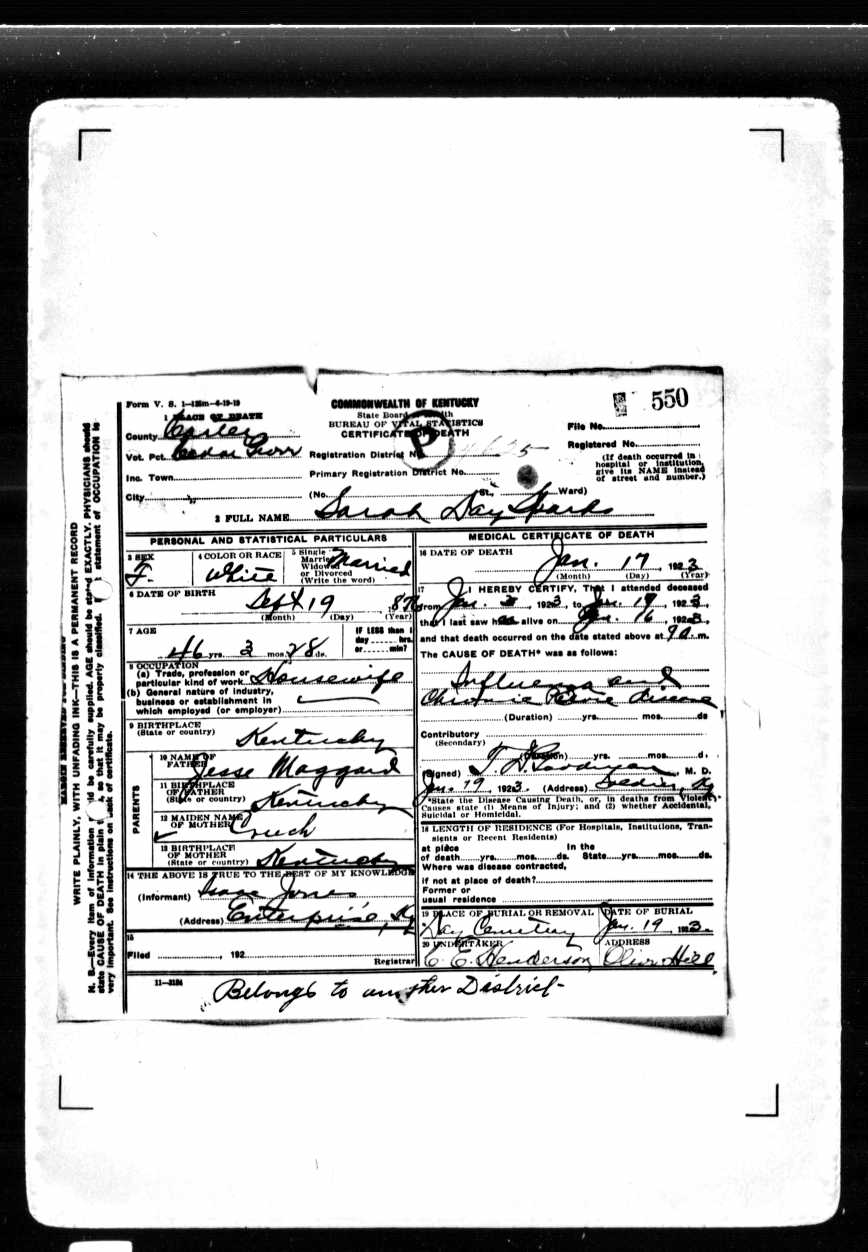 Form V. S. 1—125m—6-19-19
COMMONWEALTH OF KENTUCKY
State Board of Health
BUREAU OF VITAL STATISTICS
CERTIFICATE OF DEATH
P
550
1 PLACE OF DEATH
County Carter
Vot. Pct.
Inc. Town
City
Registration District No.
Primary Registration District No.
(No. St. Ward)
File No.
Registered No.
(If death occurred in
hospital or institution,
give its NAME instead
of street and number.)
2 FULL NAME Sarah Day Sparks
PERSONAL AND STATISTICAL PARTICULARS
3 SEX F.
4 COLOR OR RACE White
5 Single
Married
Widowed
or Divorced
(Write the word)
Married
6 DATE OF BIRTH Sept 19, 1876
(Month) (Day) (Year)
7 AGE
46 yrs. 3 mos. 28 ds.
IF LESS than 1
day hrs.
or min?
8 OCCUPATION
(a) Trade, profession or
particular kind of work Housewife
(b) General nature of industry,
business or establishment in
which employed (or employer)
9 BIRTHPLACE
(State or country) Kentucky
PARENTS
10 NAME OF
FATHER Jesse Maggard
11 BIRTHPLACE
OF FATHER
(State or country) Kentucky
12 MAIDEN NAME
OF MOTHER Crouch
13 BIRTHPLACE
OF MOTHER
(State or country) Kentucky
14 THE ABOVE IS TRUE TO THE BEST OF MY KNOWLEDGE
(Informant) Isaac Jones
(Address) Enterprise, Ky
15
Filed , 192
Registrar
11—3184
MEDICAL CERTIFICATE OF DEATH
16 DATE OF DEATH
Jan. 17, 1923
(Month) (Day) (Year)
17 I HEREBY CERTIFY, That I attended deceased
from Jan. , 1923, to Jan. , 1923,
that I last saw alive on Jan. 16, 1923,
and that death occurred on the date stated above at 9 a. m.
The CAUSE OF DEATH* was as follows:
Influenza and
Chronic disease
(Duration) yrs. mos. ds
Contributory
(Secondary)
(Duration) yrs. mos. d.
(Signed) , M. D.
Jan. 19, 1923. (Address) Soldier, Ky
*State the Disease Causing Death, or, in deaths from Violent
Causes state (1) Means of Injury; and (2) whether Accidental,
Suicidal or Homicidal.
18 LENGTH OF RESIDENCE (For Hospitals, Institutions, Tran-
sients or Recent Residents)
at place In the
of death yrs. mos. ds. State yrs. mos. ds.
Where was disease contracted,
if not at place of death?
Former or
usual residence
19 PLACE OF BURIAL OR REMOVAL
Cemetery
DATE OF BURIAL
Jan. 19, 1923.
20 UNDERTAKER
C. E. Henderson
ADDRESS
Olive Hill
Belongs to another District-
WRITE PLAINLY, WITH UNFADING INK—THIS IS A PERMANENT RECORD
N. B.—Every item of information should be carefully supplied. AGE should be stated EXACTLY. PHYSICIANS should
state CAUSE OF DEATH in plain so that it may be properly classified. statement of OCCUPATION is
very important. See instructions on back of certificate.